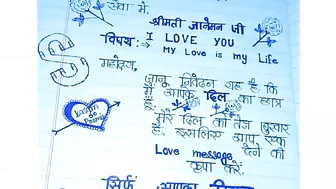 सेवा में,
श्रीमती जानेमन जी
विषय:→ I LOVE YOU
My Love is my Life
महोदय,
जानू निवेदन यह है, कि
मैं आपके दिल का छात्र
हूँ, मेरे दिल को तेज बुखार
है, इसलिए आप, एक
Love message देने की
कृपा करें.
सिर्फ आपका